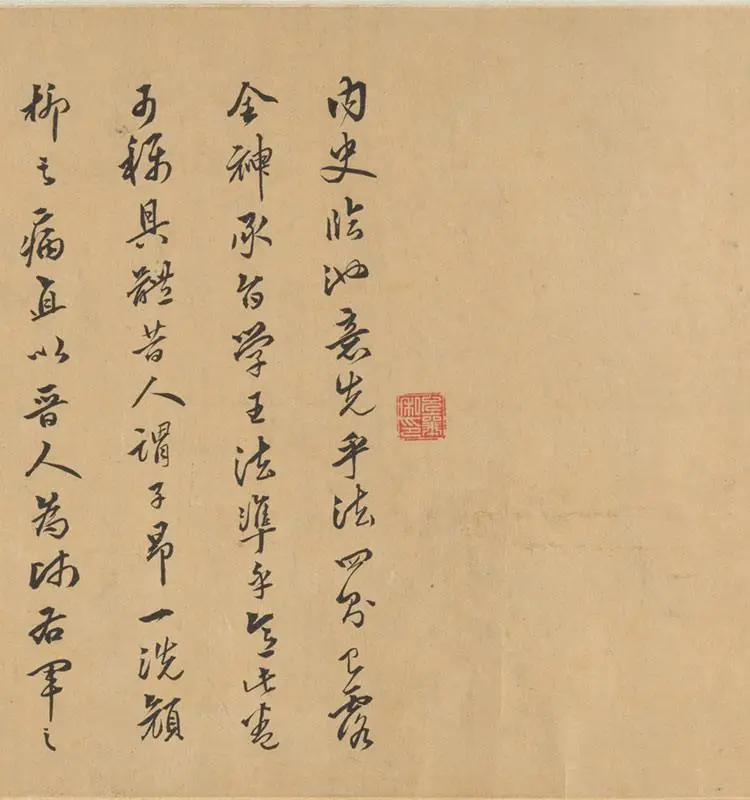 内史臨池意先乎法露
全神承旨学王法準乎意此卷
可稱具體昔人謂子昂一洗顏
柳之病直以晉人為師右軍之